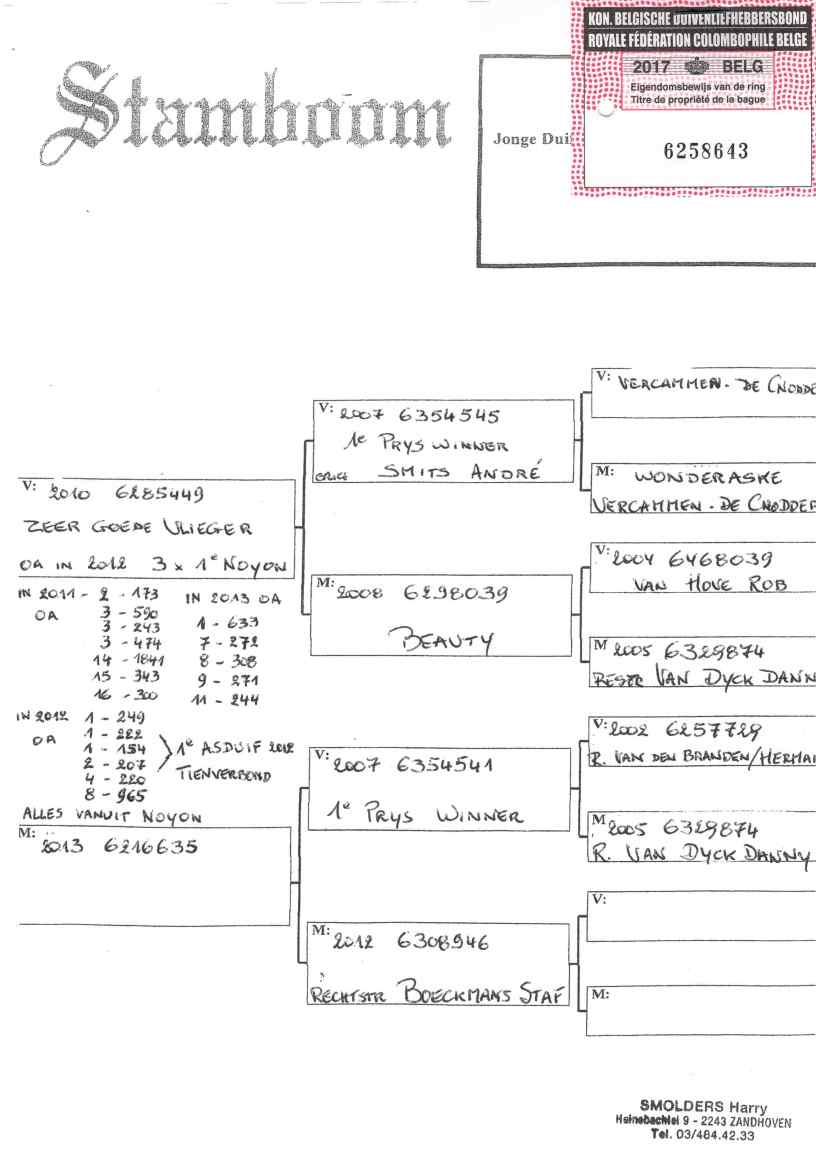 KON. BELGISCHE DUIVENLIEFHEBBERSBOND
ROYALE FÉDÉRATION COLOMBOPHILE BELGE
2017 BELG
Eigendomsbewijs van de ring
Titre de propriété de la bague
6258643
Stamboom
Jonge Dui
V: VERCAMMEN - DE CNODDE
V: 2007 6354545
1e PRYS WINNER
SMITS ANDRÉ
M: WONDERASKE
VERCAMMEN - DE CNODDER
V: 2010 6285449
ZEER GOEDE VLIEGER
OA IN 2012 3 x 1e NOYON
V: 2004 6468039
VAN HOVE ROB
M: 2008 6298039
BEAUTY
M 2005 6329874
VAN DYCK DANN
IN 2011 - 2 - 173
OA 3 - 590
3 - 243
3 - 474
14 - 1841
15 - 343
16 - 300
IN 2013 OA
1 - 633
7 - 272
8 - 308
9 - 271
11 - 244
IN 2012 1 - 249
OA 1 - 222
1 - 154
2 - 207
4 - 220
8 - 965
1e ASDUIF 2012
TIENVERBOND
ALLES VANUIT NOYON
V: 2002 6257729
R. VAN DEN BRANDEN/HERMA
V: 2007 6354541
1e PRYS WINNER
M 2005 6329874
R. VAN DYCK DANNY
M: 2013 6216635
V:
M: 2012 6308946
RECHTSTR BOECKMANS STAF
M:
SMOLDERS Harry
Heinebachlei 9 - 2243 ZANDHOVEN
Tel. 03/484.42.33